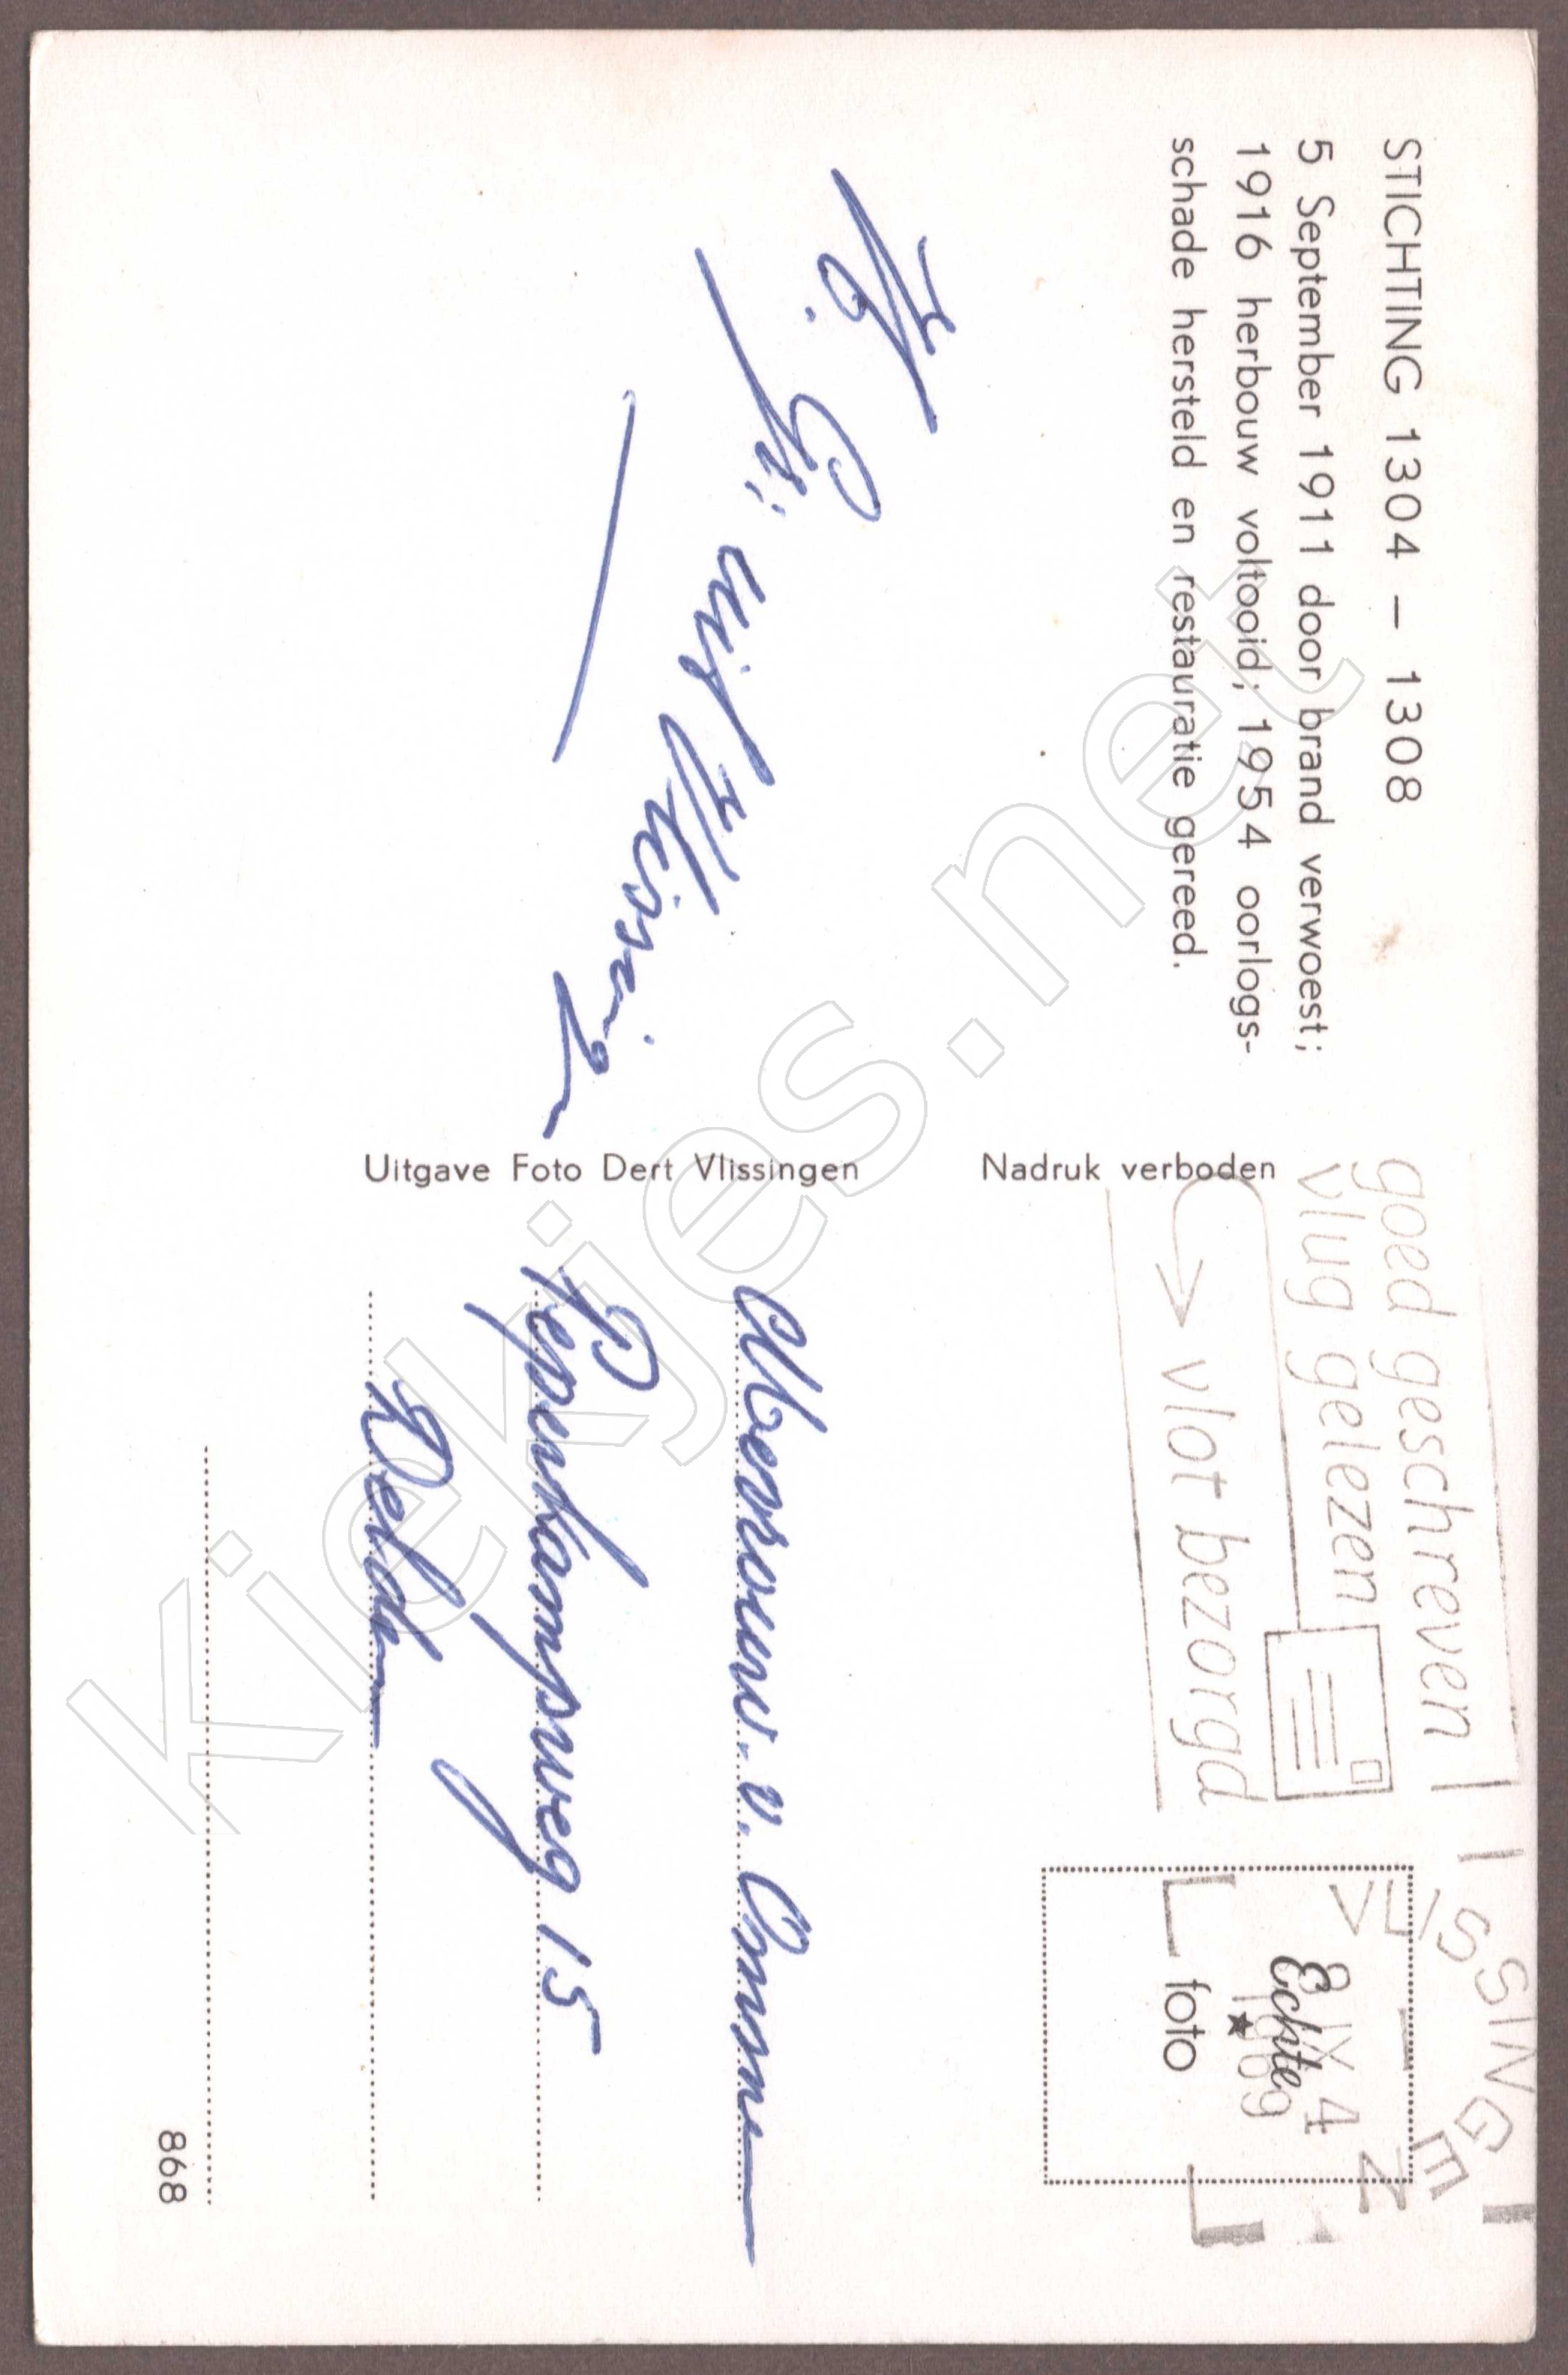 STICHTING 1304 – 1308
5 September 1911 door brand verwoest;
1916 herbouw voltooid; 1954 oorlogs-
schade hersteld en restauratie gereed.
uit Vlissingen
Uitgave Foto Dert Vlissingen
Nadruk verboden
goed geschreven
vlug gelezen
vlot bezorgd
VLISSINGEN
IX 4
1969
Echte
foto
Mevrouw. v. Ommen
Pepenkampweg 15
Delden
868
Kiekjes.net